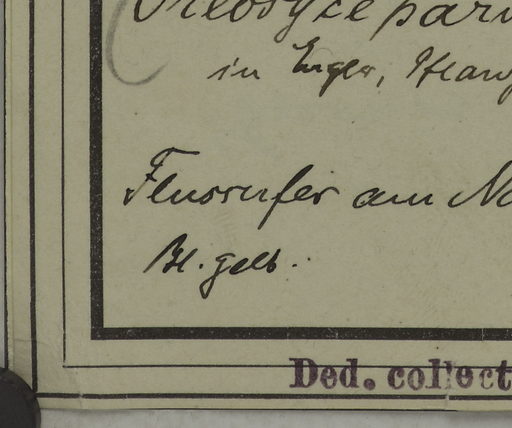 Oreosyce parvi
in Engler, Pflanz
Flussufer am N
Bl. gelb.
Ded. collect